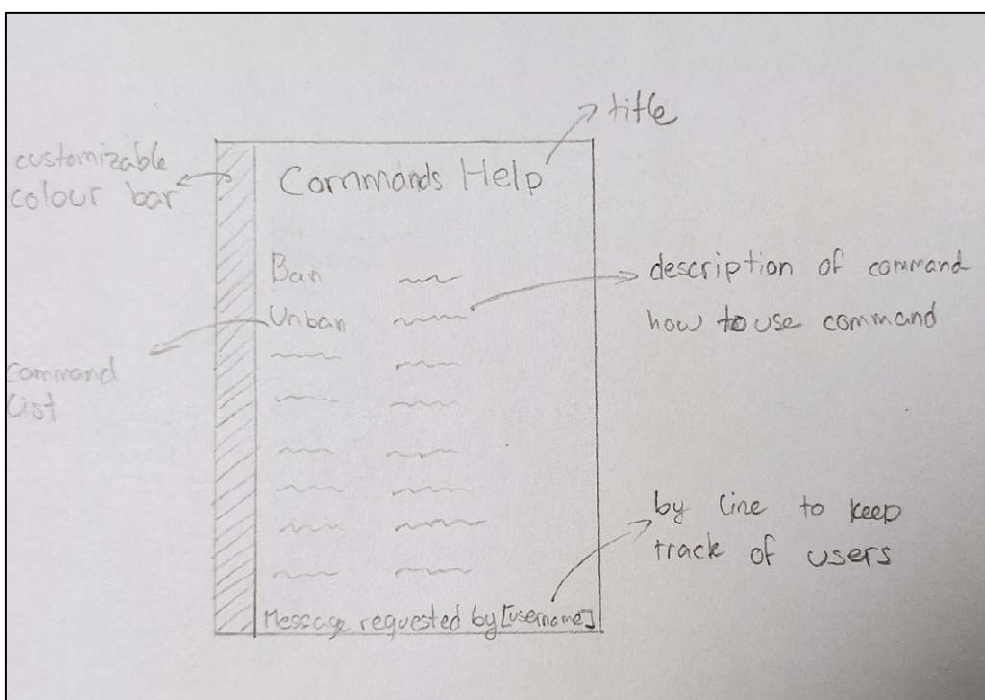 title
customizable
colour bar
Commands Help
Ban
description of command
how to use command
Unban
Command
List
by line to keep
track of users
Message requested by [username]